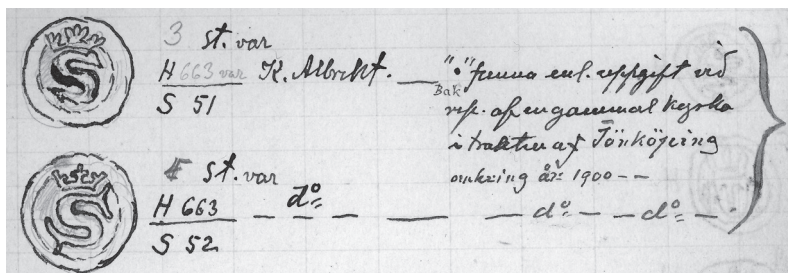 S
3 St. var
H 663 var K. Albrekt. — "•" funna enl. uppgift vid
Bak
S 51 rep. af en gammal kyrka
i trakten af Jönköping
omkring år 1900 – –
S
St. var
H 663 – dº – — — – dº – – dº –
S 52